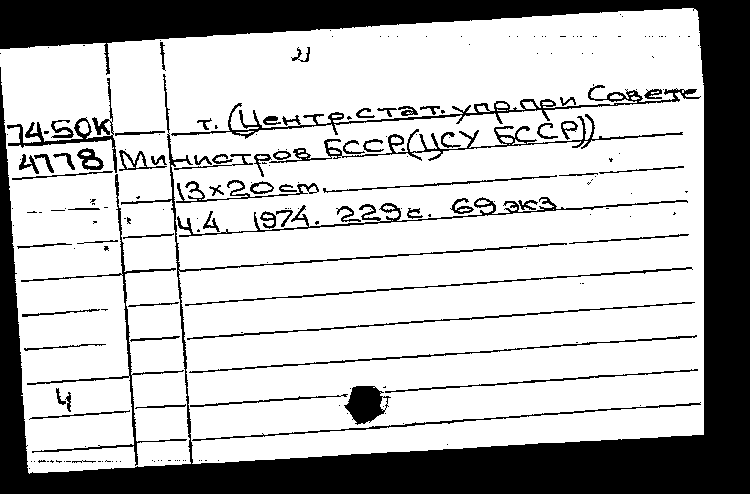 2)
т. (Центр. стат. упр. при Совете
74-50К
4778 Министров БССР. (ЦСУ БССР)).
13×20 ст.
Ч.4. 1974. 229 с. 69 экз.
4